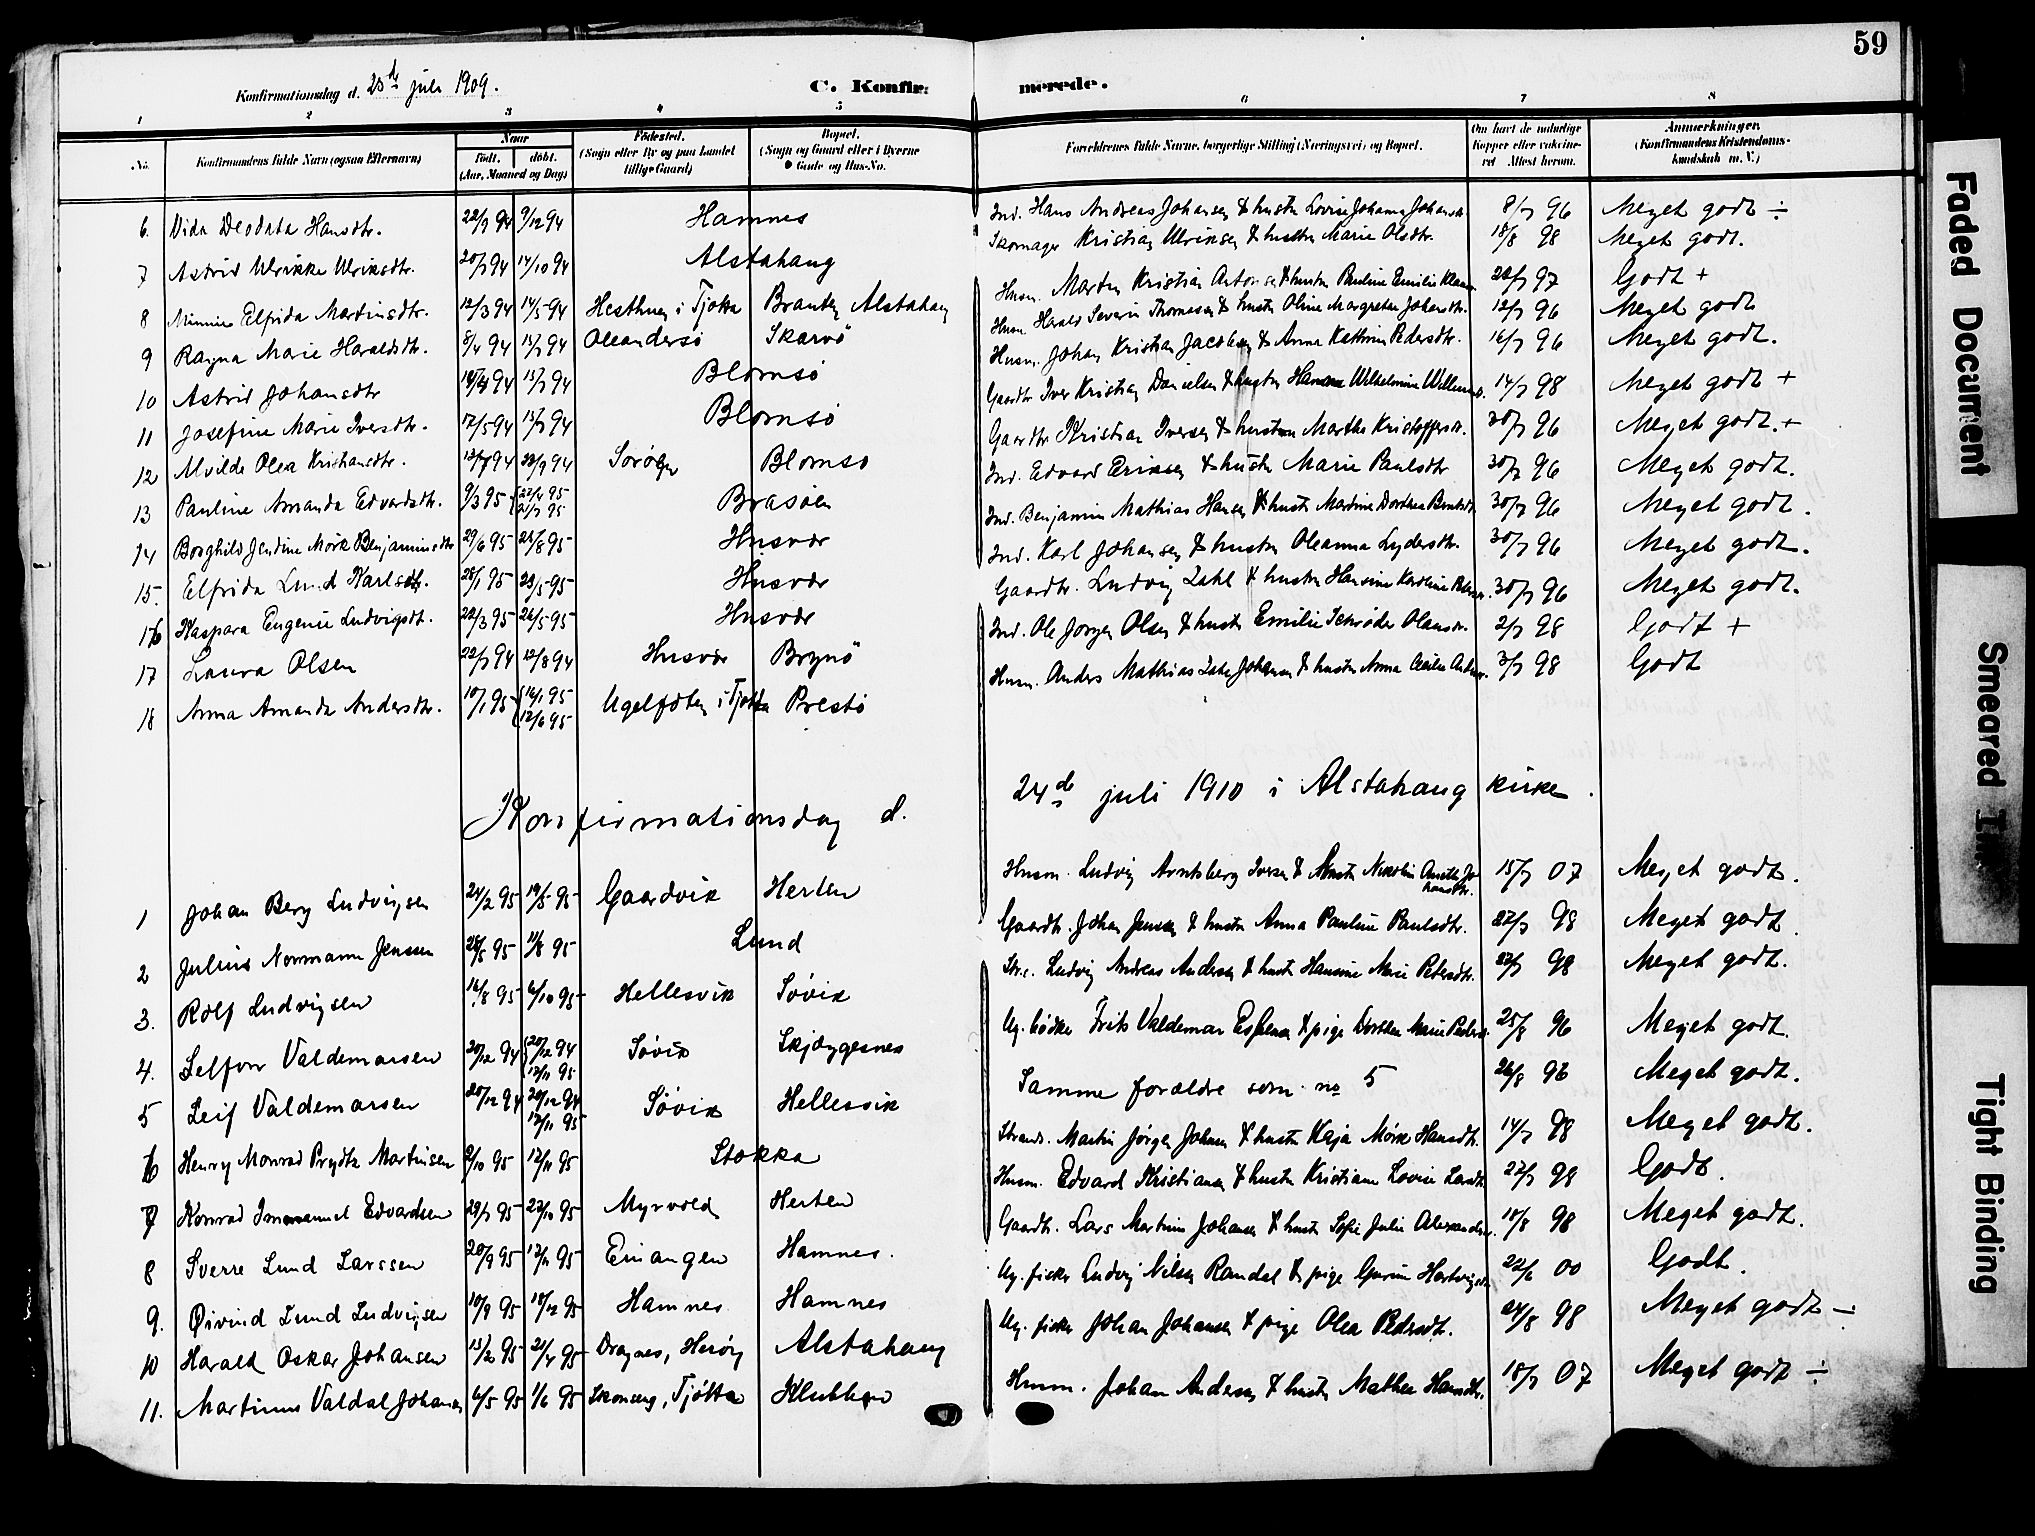 59
Konfirmationsdag d. 25de juli 1909.
C. Konfir-
merede.
1 2 3 4 5 6 7 8
No.
Konfirmandens fulde Navn (ogsaa Efternavn)
Naar
født. døbt.
(Aar, Maaned og Dag)
Fødested.
(Sogn eller By og paa Landet
tillige Gaard)
Bopæl.
(Sogn og Gaard eller i Byerne
Gade og Hus-No.
Forældrenes fulde Navne, borgerlige Stilling (Næringsvei) og Bopæl.
Om havt de naturlige
Kopper eller vaccine-
ret Attest herom.
Anmærkninger.
(Konfirmandens Kristendoms-
kundskab m. V.)
6. Vida Deodata Hansdtr. 22/9 94 9/12 94 Hamnes Ind. Hans Andreas Johansen & hustru Lovise Johanna Johansdtr. 8/7 96 Meget godt ÷
7 Astrid Ulrikke Ulriksdtr. 20/7 94 14/10 94 Alstahaug Skomager Kristian Ulriksen & hustru Marie Olsdtr. 18/8 98 Meget godt.
8 Minnie Elfrida Martinsdtr. 12/3 94 14/5 94 Hesthun i Tjøtta Alstahaug Husm. Martin Kristian & hustru Pauline Emilie 97 Godt +
9 Ragna Marie Haraldsdtr. 8/4 94 15/7 94 Oleandersø Skarvø Husm. Harald Severin Thomesen & hustru Oline Margrethe Johansdtr. 12/7 96 Meget godt
10 Astrid Johansdtr 94 15/7 94 Blomsø Husm. Johan Kristian Jacobsen & Anna Kathrine Pedersdtr. 16/7 96 Meget godt.
11 Josefine Marie Iversdtr. 17/5 94 15/7 94 Blomsø Gaardbr. Iver Kristian Danielsen & hustru Hanna Wilhelmine 14/7 98 Meget godt +
12 Alvilde Olea Kristiansdtr. 94 23/9 94 Blomsø Gaardbr. Kristian Iversen & hustru Martha Kristoffersdtr. 30/7 96 Meget godt. +
13 Pauline Amanda Edvardsdtr. 9/3 95 22/4 95 21/7 95 Brasøen Ind. Edvard Eriksen & hustru Marie Paulsdtr 30/7 96 Meget godt.
14 Borghild Jentine Mørk Benjaminsdtr 29/6 95 25/8 95 Husvær Ind. Benjamin Mathias Hansen & hustru Martine Dorthea 30/7 96 Meget godt.
15. Elfrida Lund Karlsdtr. 28/1 95 23/5 95 Husvær Ind. Karl Johansen & hustru Oleanna Lydersdtr. 30/7 96 Meget godt.
16 Kaspara Eugenie Ludvigsdt. 22/3 95 26/5 95 Husvær Gaardbr. Ludvig Zahl & hustru Hansine Karoline 30/7 96 Meget godt.
17 Laura Olsen 22/7 94 12/8 94 Husvær Brynø Ind. Ole Jørgen Olsen & hustru Emilie Schrøder Olausdtr. 2/7 98 Godt +
18 Anna Amanda Andersdtr. 10/1 95 16/1 95 12/6 95 Ugelfoten i Tjøtta Prestø Husm. Anders Mathias Zahl Johansen & hustru Anna Cecilie 3/7 98 Godt
Konfirmationsdag d. 24de juli 1910 i Alstahaug kirke.
1 Johan Berg Ludvigsen 24/2 95 19/5 95 Gaardvik Herten Husm. Ludvig Arntsberg Iversen & hustru Nikoline Johansdtr. 15/7 07 Meget godt.
2 Julius Normann Jenssen 28/5 95 11/8 95 Lund Gaardbr. Johan Jensen & hustru Anna Pauline Paulsdtr. 98 Meget godt.
3. Rolf Ludvigsen 16/8 95 6/10 95 Hellesvik Søvik Ludvig Andreas Andersen & hustru Hansine Marie Petersdtr. 98 Meget godt.
4. Selfor Valdemarsen 20/12 94 20/12 94 17/11 95 Søvik Skjæggesnes Ug. bødker Frits Valdemar Espensen & pige Dorthea Marie 25/8 96 Meget godt.
5 Leif Valdemarsen 20/12 94 20/12 94 17/11 95 Søvik Hellesvik Samme forældre som no 5 26/8 96 Meget godt.
6 Henry Monrad Prydtz Martinsen 9/10 95 17/11 95 Stokka Strands. Martin Jørgen Johnsen & hustru Kaja Mørk Hansdtr. 14/7 98 Meget godt.
7 Konrad Immanuel Edvardsen 29/7 95 27/10 95 Myrvold Herten Husm. Edvard Kristiansen & hustru Kristiane Lovise Larsdtr 27/7 98 Godt.
8 Sverre Lund Larssen 20/9 95 17/11 95 Einangen Hamnes. Gaardbr. Lars Martinus Johansen & hustru Sofie Julie 18/8 98 Meget godt.
9. Øivind Lund Ludvigsen 10/9 95 18/12 95 Hamnes Hamnes Ug. fisker Ludvig Nilsen Randal & pige Gurine Hartvigsdtr 22/6 00 Godt.
10 Harald Oskar Johansen 15/2 95 21/4 95 Dragnes, Herøy Alstahaug Ug. fisker Johan Johansen & pige Olea Pedersdtr. 24/8 98 Meget godt ÷
11. Martinus Valdal Johansen 6/5 95 1/6 95 Tjøtta Klubben Husm. Johan Andersen & hustru Mathea Hansdtr. 18/7 07 Meget godt ÷
Faded Document
Smeared Ink
Tight Binding